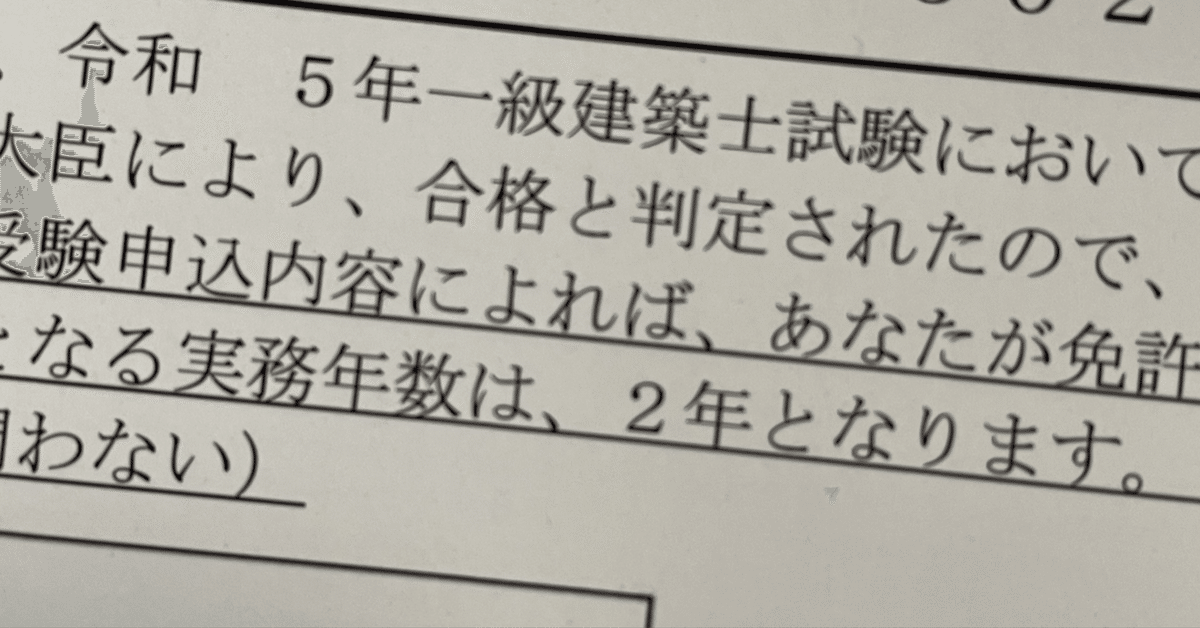 令和　５年一級建築士試験において
大臣により、合格と判定されたので、
受験申込内容によれば、あなたが免許
となる実務年数は、２年となります。
問わない）